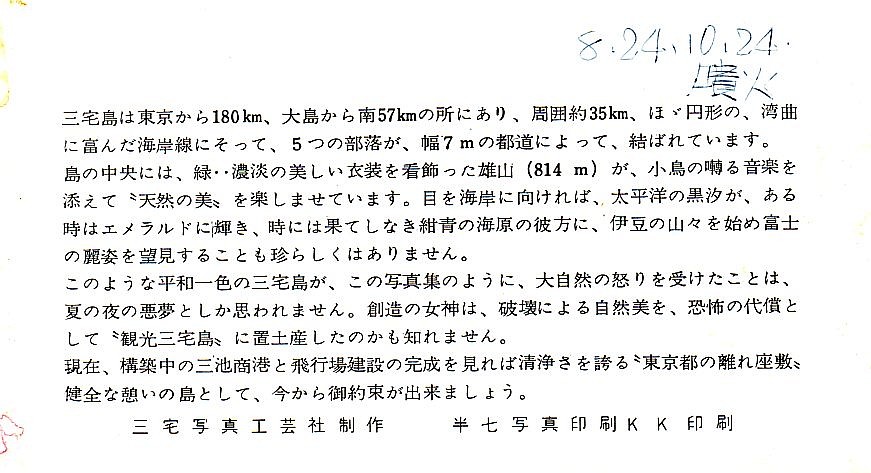 8.24.10.24.
噴火
三宅島は東京から180km、大島から南57kmの所にあり、周囲約35km、ほゞ円形の、湾曲
に富んだ海岸線にそって、5つの部落が、幅7mの都道によって、結ばれています。
島の中央には、緑‥濃淡の美しい衣装を着飾った雄山(814 m)が、小鳥の囀る音楽を
添えて〝天然の美〟を楽しませています。目を海岸に向ければ、太平洋の黒汐が、ある
時はエメラルドに輝き、時には果てしなき紺青の海原の彼方に、伊豆の山々を始め富士
の麗姿を望見することも珍らしくはありません。
このような平和一色の三宅島が、この写真集のように、大自然の怒りを受けたことは、
夏の夜の悪夢としか思われません。創造の女神は、破壊による自然美を、恐怖の代償と
して〝観光三宅島〟に置土産したのかも知れません。
現在、構築中の三池商港と飛行場建設の完成を見れば清浄さを誇る〝東京都の離れ座敷〟
健全な憩いの島として、今から御約束が出来ましょう。
三宅写真工芸社制作 半七写真印刷KK印刷